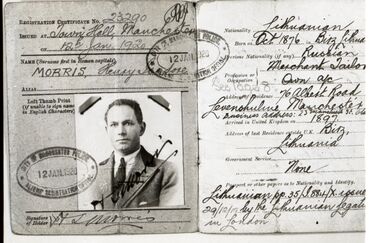 REGISTRATION CERTIFICATE No. 23290
ISSUED AT Town Hall, Manchester
ON 12th Jan 1920
NAME (Surname first in Roman capitals)
MORRIS, Henry
ALIAS
Left Thumb Print
(if unable to sign name
in English Characters).
CITY OF MANCHESTER POLICE
12 JAN 1920
ALIENS REGISTRATION OFFICE
12 JAN 1920
CITY OF MANCHESTER POLICE
12 JAN 1920
ALIENS REGISTRATION OFFICE
Signature
of Holder
Morris
Nationality Lithuanian
Born on 1876 in
Previous Nationality (if any) Russian
Profession or
Occupation
Merchant Tailor
Own a/c
76 Albert Road
Levenshulme Manchester
Business address: 23
Arrived in United Kingdom on 1897
Address of last Residence outside U.K.
Lithuania
Government Service
None
Passport or other papers as to Nationality and Identity.
Lithuanian pp 35/
29/12/19 by the Lithuanian Legation
in London